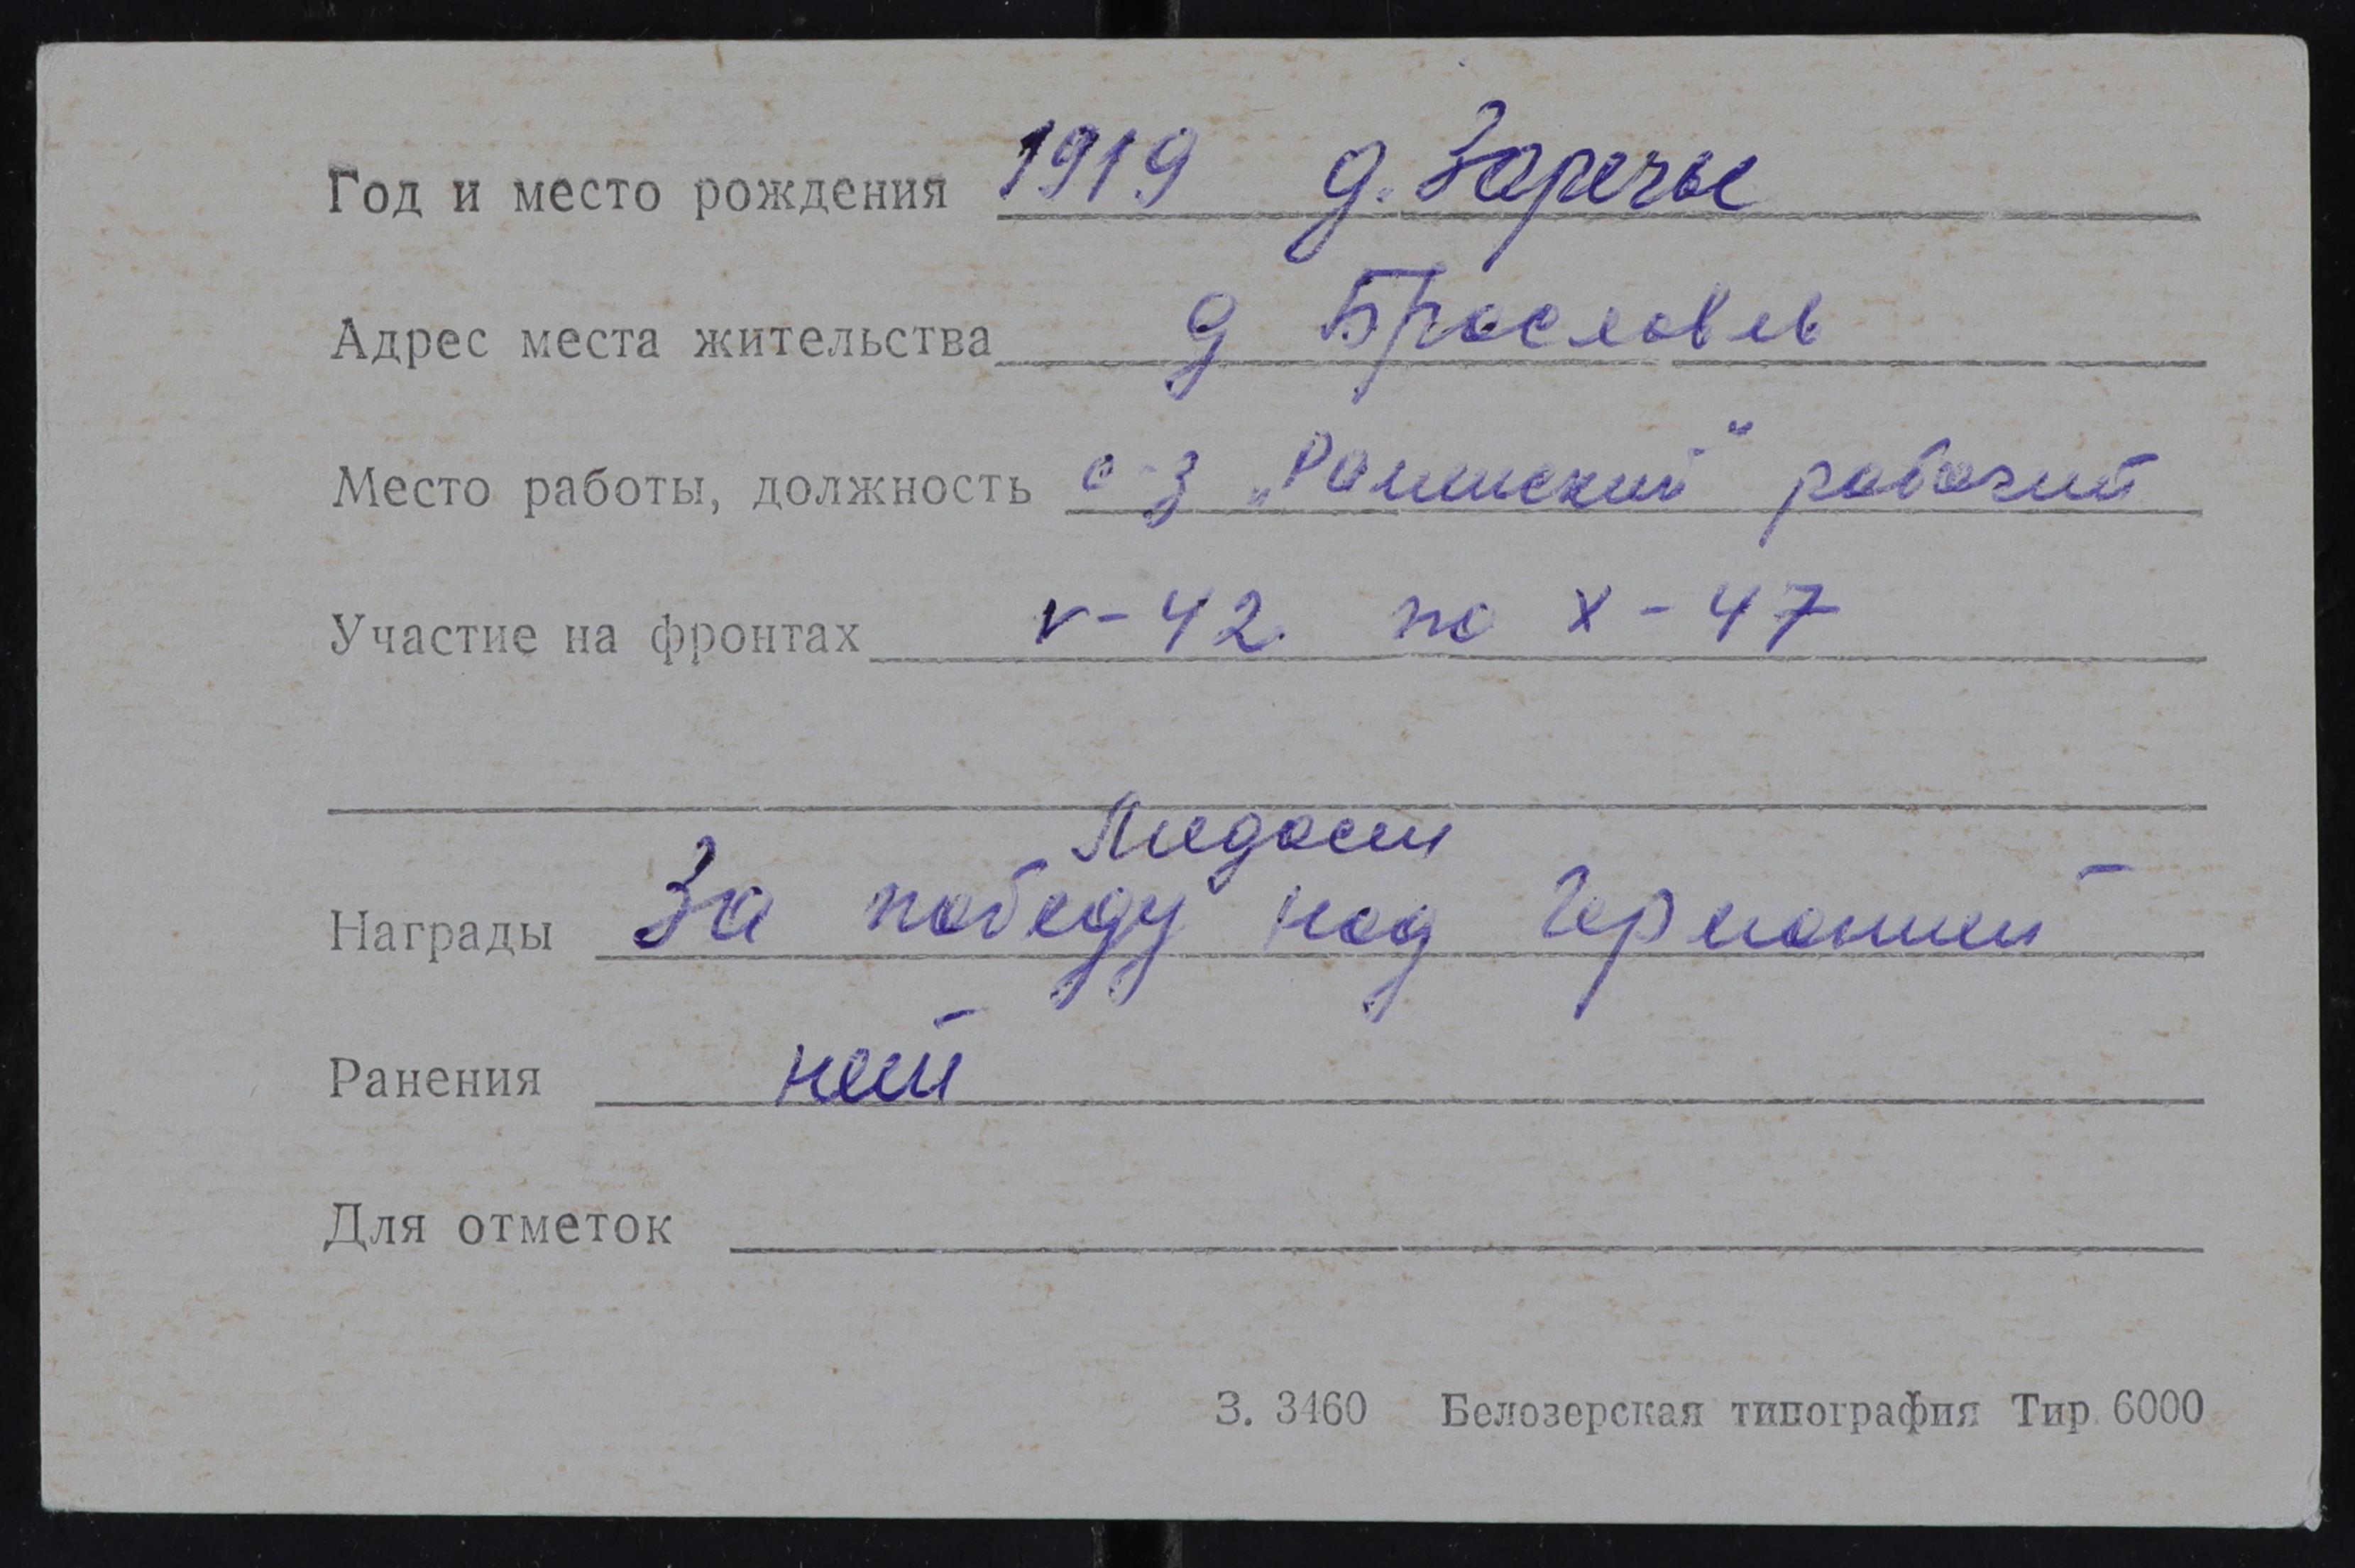 Год и место рождения 1919 д. Заречье
Адрес места жительства д Брословль
Место работы, должность с-з „Роминский" рабочий
Участие на фронтах V-42 по X-47
Медаль
Награды За победу над Германией
Ранения нет
Для отметок
З. 3460 Белозерская типография Тир. 6000